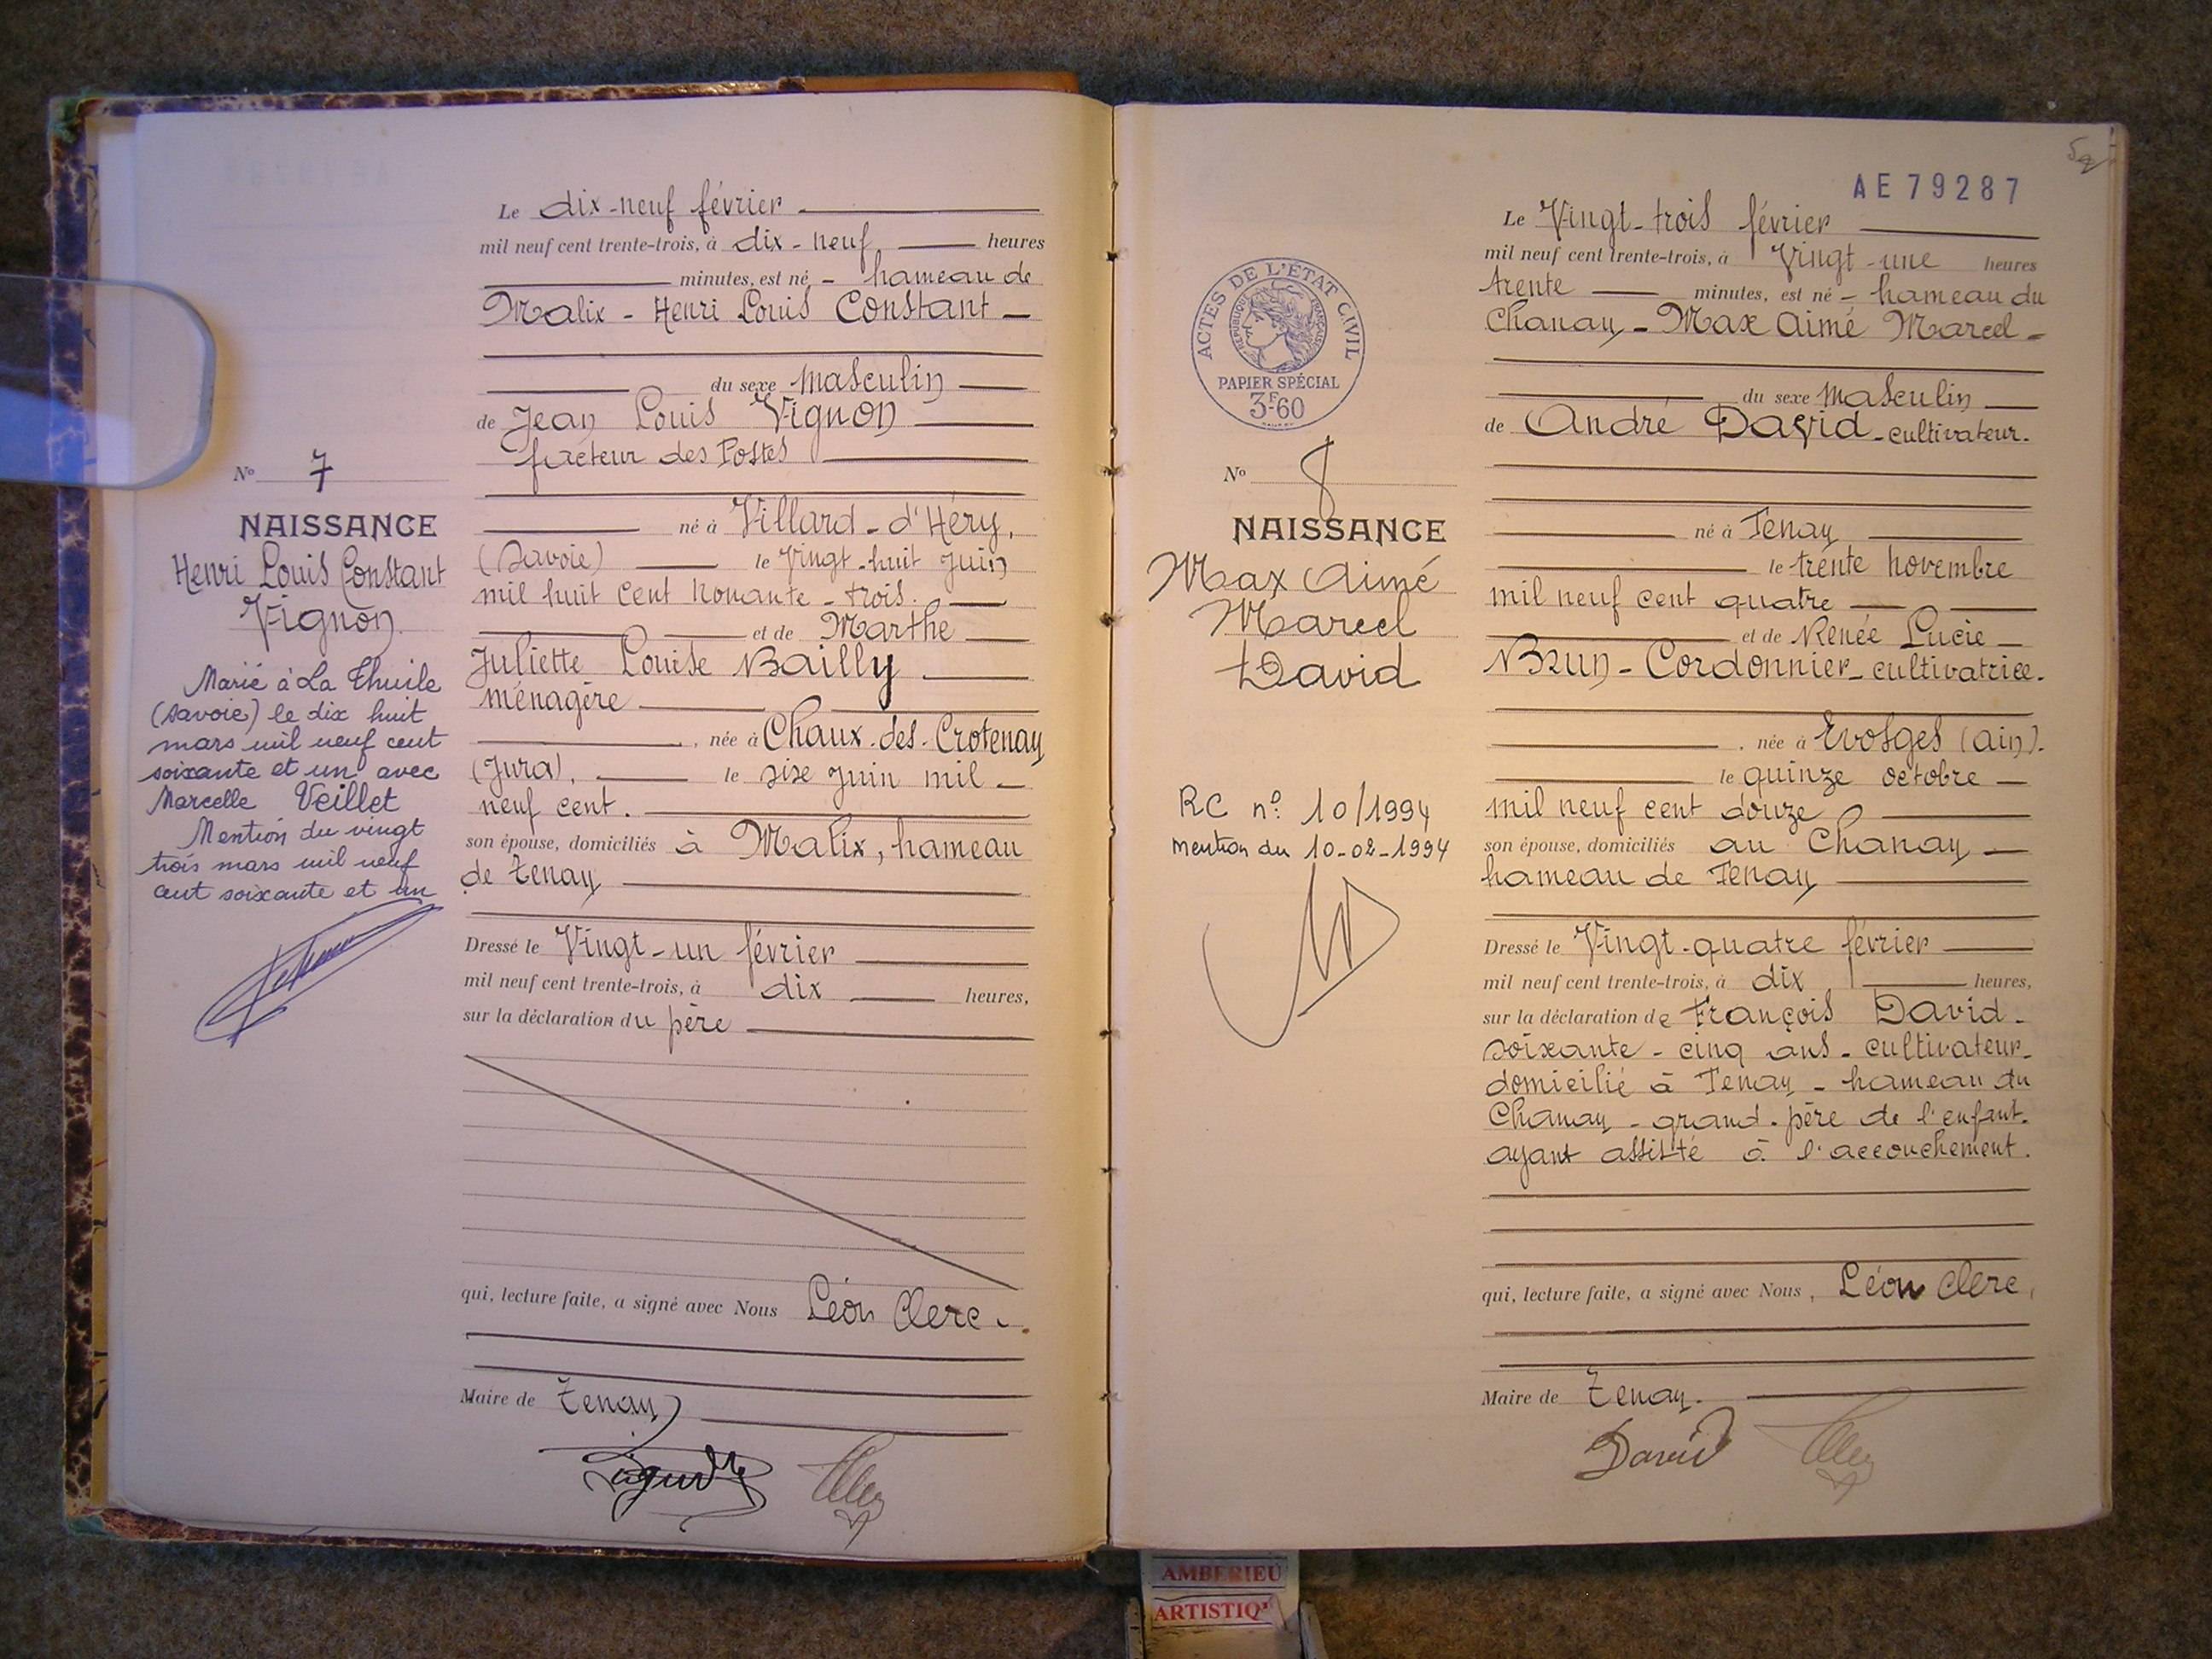 Le dix-neuf février
mil neuf cent trente-trois, à dix-neuf heures
minutes, est né - hameau de
Malix - Henri Louis Constant -
du sexe masculin
de Jean Louis Vignon
facteur des Postes
né à Villard-d'Héry,
(Savoie) le vingt-huit juin
mil huit cent nonante-trois.
et de Marthe
Juliette Louise Bailly
ménagère
, née à Chaux-des-Crotenay
(Jura), le six juin mil
neuf cent.
son épouse, domiciliés à Malix, hameau
de Tenay
Dressé le Vingt-un février
mil neuf cent trente-trois, à dix heures,
sur la déclaration du père
qui, lecture faite, a signé avec Nous Léon Clerc.
Maire de Tenay
No 7
NAISSANCE
Henri Louis Constant
Vignon
Marié à La Thuile
(Savoie) le dix huit
mars mil neuf cent
soixante et un avec
Marcelle Veillet
Mention du vingt
trois mars mil neuf
cent soixante et un
AE79287
Le Vingt-trois février
mil neuf cent trente-trois, à Vingt-une heures
trente minutes, est né - hameau du
Chanay - Max Aimé Marcel -
du sexe masculin
de André David - cultivateur.
né à Tenay
le trente novembre
mil neuf cent quatre
et de Renée Lucie
Brun-Cordonnier - cultivatrice.
. née à Evosges (Ain).
le quinze octobre
mil neuf cent douze
son épouse, domiciliés au Chanay
hameau de Tenay
Dressé le Vingt-quatre février
mil neuf cent trente-trois, à dix heures,
sur la déclaration de François David -
soixante-cinq ans - cultivateur -
domicilié à Tenay - hameau du
Chanay - grand-père de l'enfant.
ayant assisté à l'accouchement.
qui, lecture faite, a signé avec Nous, Léon Clerc,
Maire de Tenay.
David
ACTES DE L'ÉTAT CIVIL
RÉPUBLIQUE FRANÇAISE
PAPIER SPÉCIAL
3F60
No 8
NAISSANCE
Max Aimé
Marcel
David
RC no 10/1994
mention du 10-02-1994
AMBERIEU
ARTISTIQ